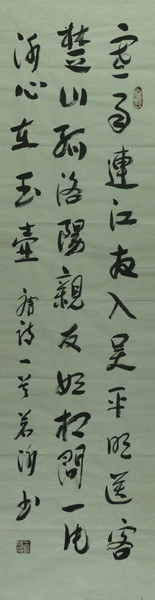 寒雨連江夜入吳平明送客
楚山孤洛陽親友如相問一片
冰心在玉壺 唐詩一首 若冰书